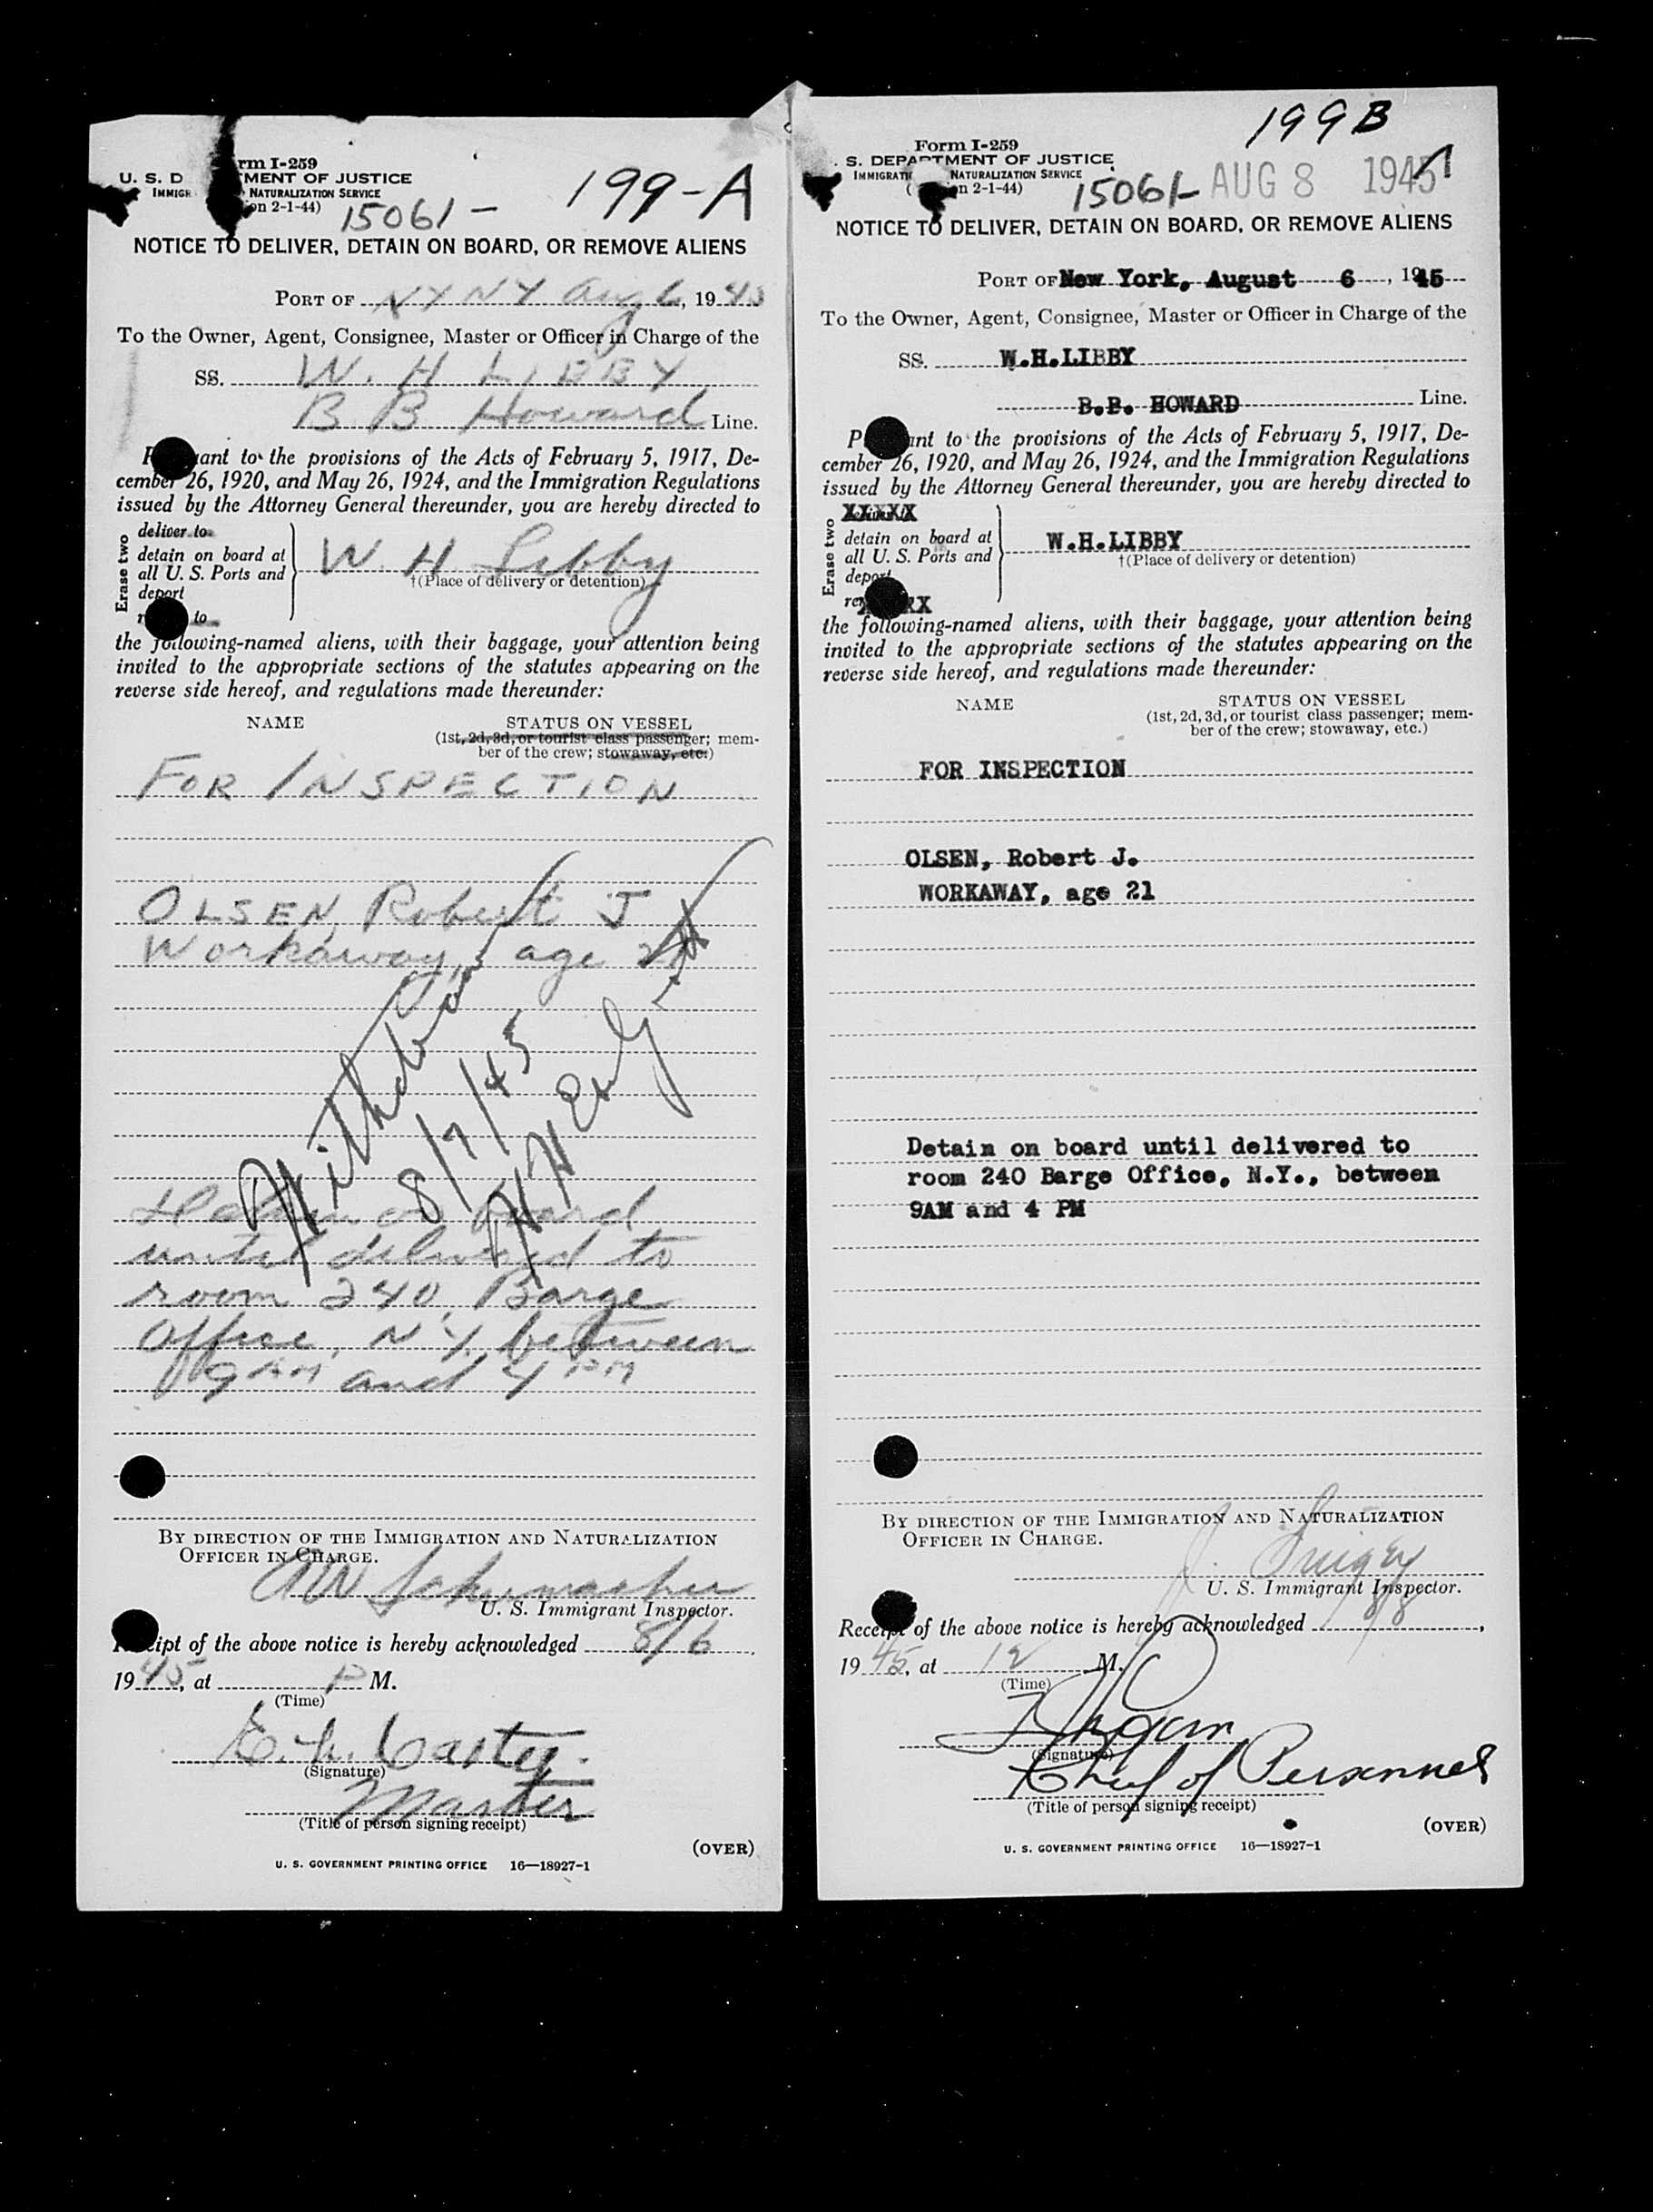 rm I-259
U. S. D MENT OF JUSTICE
IMMIGR NATURALIZATION SERVICE
on 2-1-44)
15061-
199-A
NOTICE TO DELIVER, DETAIN ON BOARD, OR REMOVE ALIENS
PORT OF NY NY Aug 6, 1945
To the Owner, Agent, Consignee, Master or Officer in Charge of the
SS. W. H LIBBY
B B Howard Line.
P ant to the provisions of the Acts of February 5, 1917, De-
cember 26, 1920, and May 26, 1924, and the Immigration Regulations
issued by the Attorney General thereunder, you are hereby directed to
Erase two
deliver to
detain on board at
all U. S. Ports and
deport
r to
W. H Libby
†(Place of delivery or detention)
the following-named aliens, with their baggage, your attention being
invited to the appropriate sections of the statutes appearing on the
reverse side hereof, and regulations made thereunder:
NAME STATUS ON VESSEL
(1st, 2d, 3d, or tourist class passenger; mem-
ber of the crew; stowaway, etc.)
FOR INSPECTION
OLSEN, Robert J
Workaway, age 21
8/7/45
Detain on board
until delivered to
room 240, Barge
Office, N Y. between
9 AM and 4 PM
BY DIRECTION OF THE IMMIGRATION AND NATURALIZATION
OFFICER IN CHARGE.
AW Schumacher
U. S. Immigrant Inspector.
Receipt of the above notice is hereby acknowledged 8/6,
1945, at P M.
(Time)
E. h. Carter.
(Signature)
Master
(Title of person signing receipt)
(OVER)
U. S. GOVERNMENT PRINTING OFFICE 16—18927-1
199B
Form I-259
. S. DEPARTMENT OF JUSTICE
IMMIGRATI NATURALIZATION SERVICE
( n 2-1-44)
15061-
AUG 8 1945
NOTICE TO DELIVER, DETAIN ON BOARD, OR REMOVE ALIENS
PORT OF New York, August 6, 1945
To the Owner, Agent, Consignee, Master or Officer in Charge of the
SS. W.H.LIBBY
B.B. HOWARD Line.
P ant to the provisions of the Acts of February 5, 1917, De-
cember 26, 1920, and May 26, 1924, and the Immigration Regulations
issued by the Attorney General thereunder, you are hereby directed to
Erase two
XXXXX
detain on board at
all U. S. Ports and
deport
re XX
W.H.LIBBY
†(Place of delivery or detention)
the following-named aliens, with their baggage, your attention being
invited to the appropriate sections of the statutes appearing on the
reverse side hereof, and regulations made thereunder:
NAME STATUS ON VESSEL
(1st, 2d, 3d, or tourist class passenger; mem-
ber of the crew; stowaway, etc.)
FOR INSPECTION
OLSEN, Robert J.
WORKAWAY, age 21
Detain on board until delivered to
room 240 Barge Office, N.Y., between
9AM and 4 PM
BY DIRECTION OF THE IMMIGRATION AND NATURALIZATION
OFFICER IN CHARGE.
U. S. Immigrant Inspector.
Receipt of the above notice is hereby acknowledged 8/8,
1945, at 12 M.
(Time)
(Signature)
Chief of Personnel
(Title of person signing receipt)
(OVER)
U. S. GOVERNMENT PRINTING OFFICE 16—18927-1